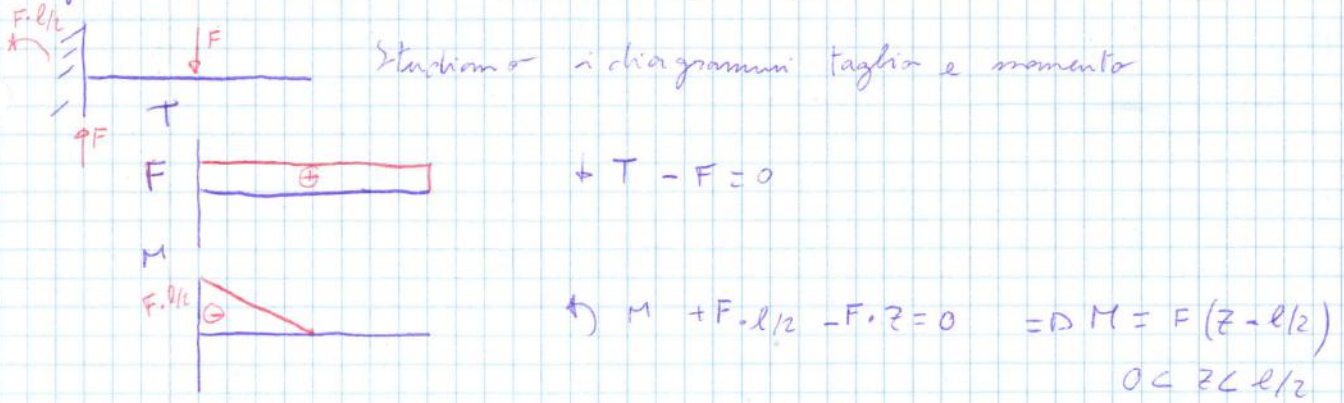 F·l/2
F
Studiamo i diagrammi taglio e momento
F
T
F ⊕
↓ T - F = 0
M
F·l/2 ⊖
↰) M + F·l/2 - F·z = 0 => M = F(z - l/2)
0 < z < l/2